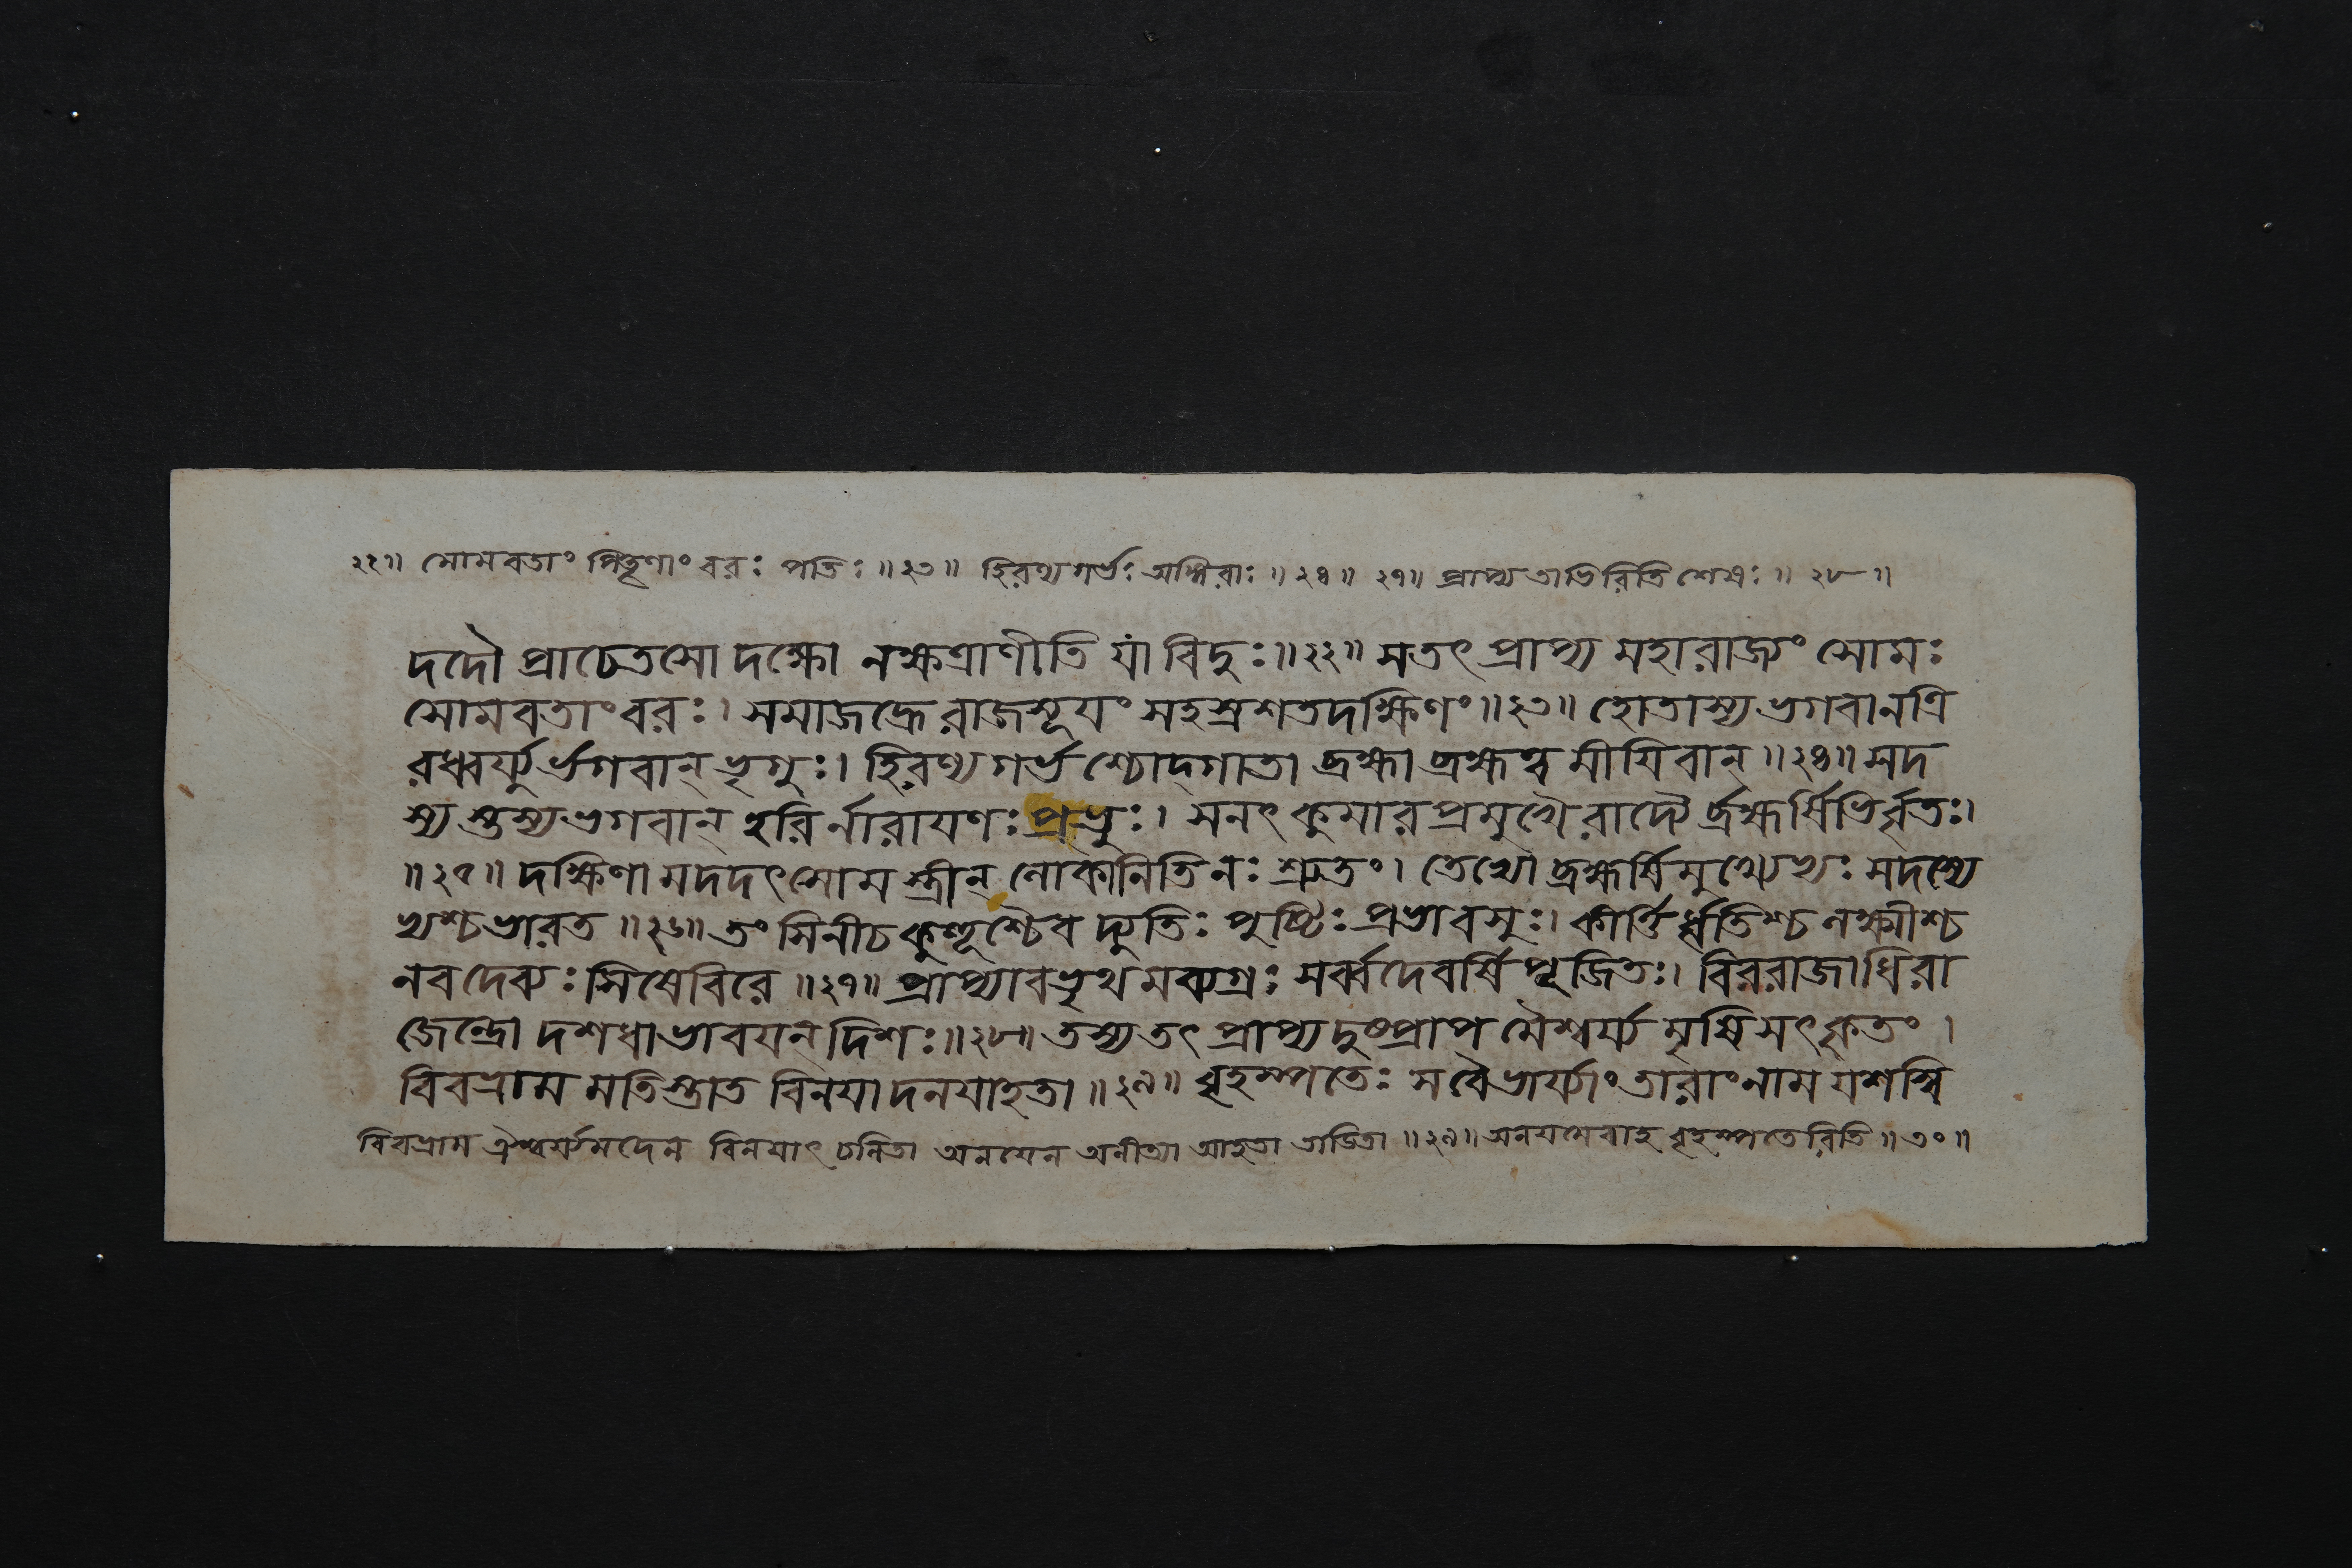 ২২॥ সোমবতাং পিতৄণাং বরঃ পতিঃ ॥২৩॥ হিরণ্যগর্ভঃ অঙ্গিরাঃ ॥২৪॥ ২৭॥ প্রাপ্য তাভিরিতি শেষঃ ॥২৮॥
দদৌ প্রাচেতসো দক্ষো নক্ষত্রাণীতি যাং বিদুঃ॥২২॥ সতৎ প্রাপ্য মহারাজ্যং সোমঃ
সোমবতাং বরঃ। সমাজহ্রে রাজসূয়ং সহস্রশতদক্ষিণং॥২৩॥ হোতাস্য ভগবানত্রি
রধ্বর্য্যুর্ভগবান্ ভৃগুঃ। হিরণ্যগর্ভশ্চোদ্গাতা ব্রহ্মা ব্রহ্মত্ব মীয়িবান্ ॥২৪॥ সদ
স্য স্তস্য ভগবান্ হরির্নারায়ণঃ প্রভুঃ। সনৎ কুমারপ্রমুখৈ রাদ্যৈ র্ব্রহ্মর্ষিভির্বৃতঃ।
॥২৫॥ দক্ষিণা মদদৎ সোম স্ত্রীন্ লোকানিতি নঃ শ্রুতং। তেভ্যো ব্রহ্মর্ষিমুখ্যেভ্যঃ সদস্যে
ভ্যশ্চ ভারত ॥২৬॥ তং সিনীচ কুহূশ্চৈব দ্যুতিঃ পুষ্টিঃ প্রভাবসুঃ। কীর্ত্তি র্ধৃতিশ্চ লক্ষ্মীশ্চ
নব দেব্যঃ সিষেবিরে ॥২৭॥ প্রাপ্যাবভৃথ মব্যগ্রঃ সর্ব্বদেবর্ষি পূজিতঃ। বিররাজাধিরা
জেন্দ্রো দশধা ভাবয়ন্ দিশঃ॥২৮॥ তস্য তৎ প্রাপ্য দুষ্প্রাপ মৈশ্বর্য্য মৃষি সৎকৃতং।
বিবভ্রাম মতিস্তাত বিনয়া দনয়াহতা ॥২৯॥ বৃহস্পতেঃ সবৈ ভার্য্যাং তারাং নাম যশস্বি
বিবভ্রাম ঐশ্বর্য্যমদেন বিনয়াৎ চলিতা অনয়েন অনীত্যা আহতা তাডিতা ॥২৯॥ অনয়মেবাহ বৃহস্পতেরিতি ॥৩০॥